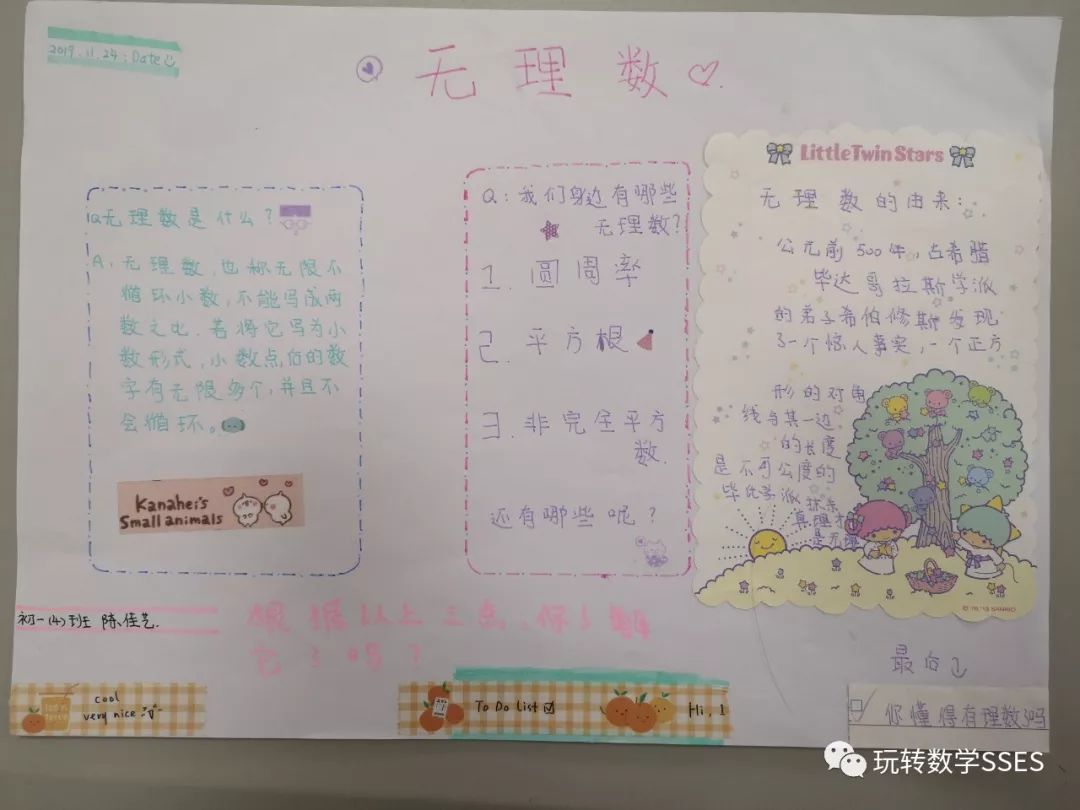 2019.11.24:Date
无理数
Q无理数是什么?
A:无理数,也称无限不
循环小数,不能写成两
数之比.若将它写为小
数形式,小数点后的数
字有无限多个,并且不
会循环。
Kanahei's
Small animals
Q:我们身边有哪些
无理数?
1.圆周率
2.平方根
3.非完全平方
数.
还有哪些呢?
LittleTwinStars
无理数的由来:
公元前500年,古希腊
毕达哥拉斯学派
的弟子希伯修斯发现
了一个惊人事实,一个正方
形的对角
线与其一边
的长度
是不可公度的
毕氏学派
真理
是无理
© '76,'13 SANRIO
初一(4)班 陈佳艺.
根据以上三点,你了解
它了吗?
最后
你懂得有理数了吗
cool
very nice
To Do List
Hi,1
玩转数学SSES